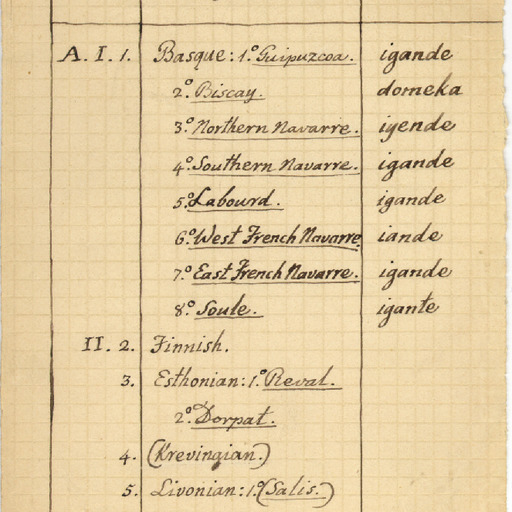 A. I. 1. Basque: 1.º Guipuzcoa. igande
2.º Biscay. domeka
3.º Northern Navarre. igende
4.º Southern Navarre. igande
5.º Labourd. igande
6.º West French Navarre iande
7.º East French Navarre. igande
8.º Soule. igante
II. 2. Finnish.
3. Esthonian: 1.º Reval.
2.º Dorpat.
4. (Krevingian.)
5. Livonian: 1.º (Salis.)